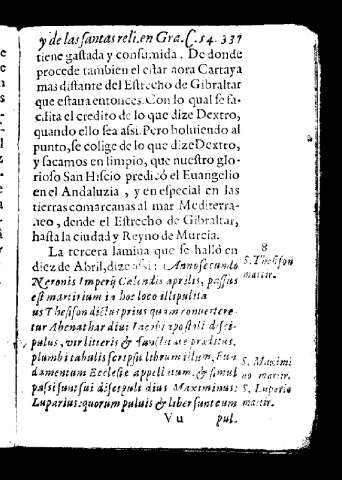 y de las santas reli. en Gra. C. 14. 337
tiene gastada y consumida. De donde
procede tambien el estar aora Cartaya
mas distante del Estrecho de Gibraltar
que estaua entonces. Con lo qual se fa-
cilita el credito de lo que dize Dextro,
quando ello sea assi. Pero boluiendo al
punto, se colige de lo que dize Dextro,
y sacamos en limpio, que nuestro glo-
rioso San Hiscio predicó el Euangelio
en el Andaluzia, y en especial en las
tierras comarcanas al mar Mediterra-
neo, dende el Estrecho de Gibraltar,
hasta la ciudad y Reyno de Murcia.
La tercera lamina que se halló en
diez de Abril, dize assi: Anno secundo
Neronis Imperij Calendis aprilis, passus
est martirium in hoc loco illipulita
us Thesifon dictus prius quam converteretur
tur Abenathar diui Iacobi apostoli disci-
pulus, vir litteris & sanctitate præditus.
plumbi tabulis scripsit librum illum, Fun
damentum Ecclesiæ appellatum. & simul
passi sunt sui discipuli diuus Maximinus:
Luparius: quorum puluis & liber sunt cum
Vu pul.
8
S. Thesifon
martir.
S. Maximi
no martir.
S. Lupario
martir.